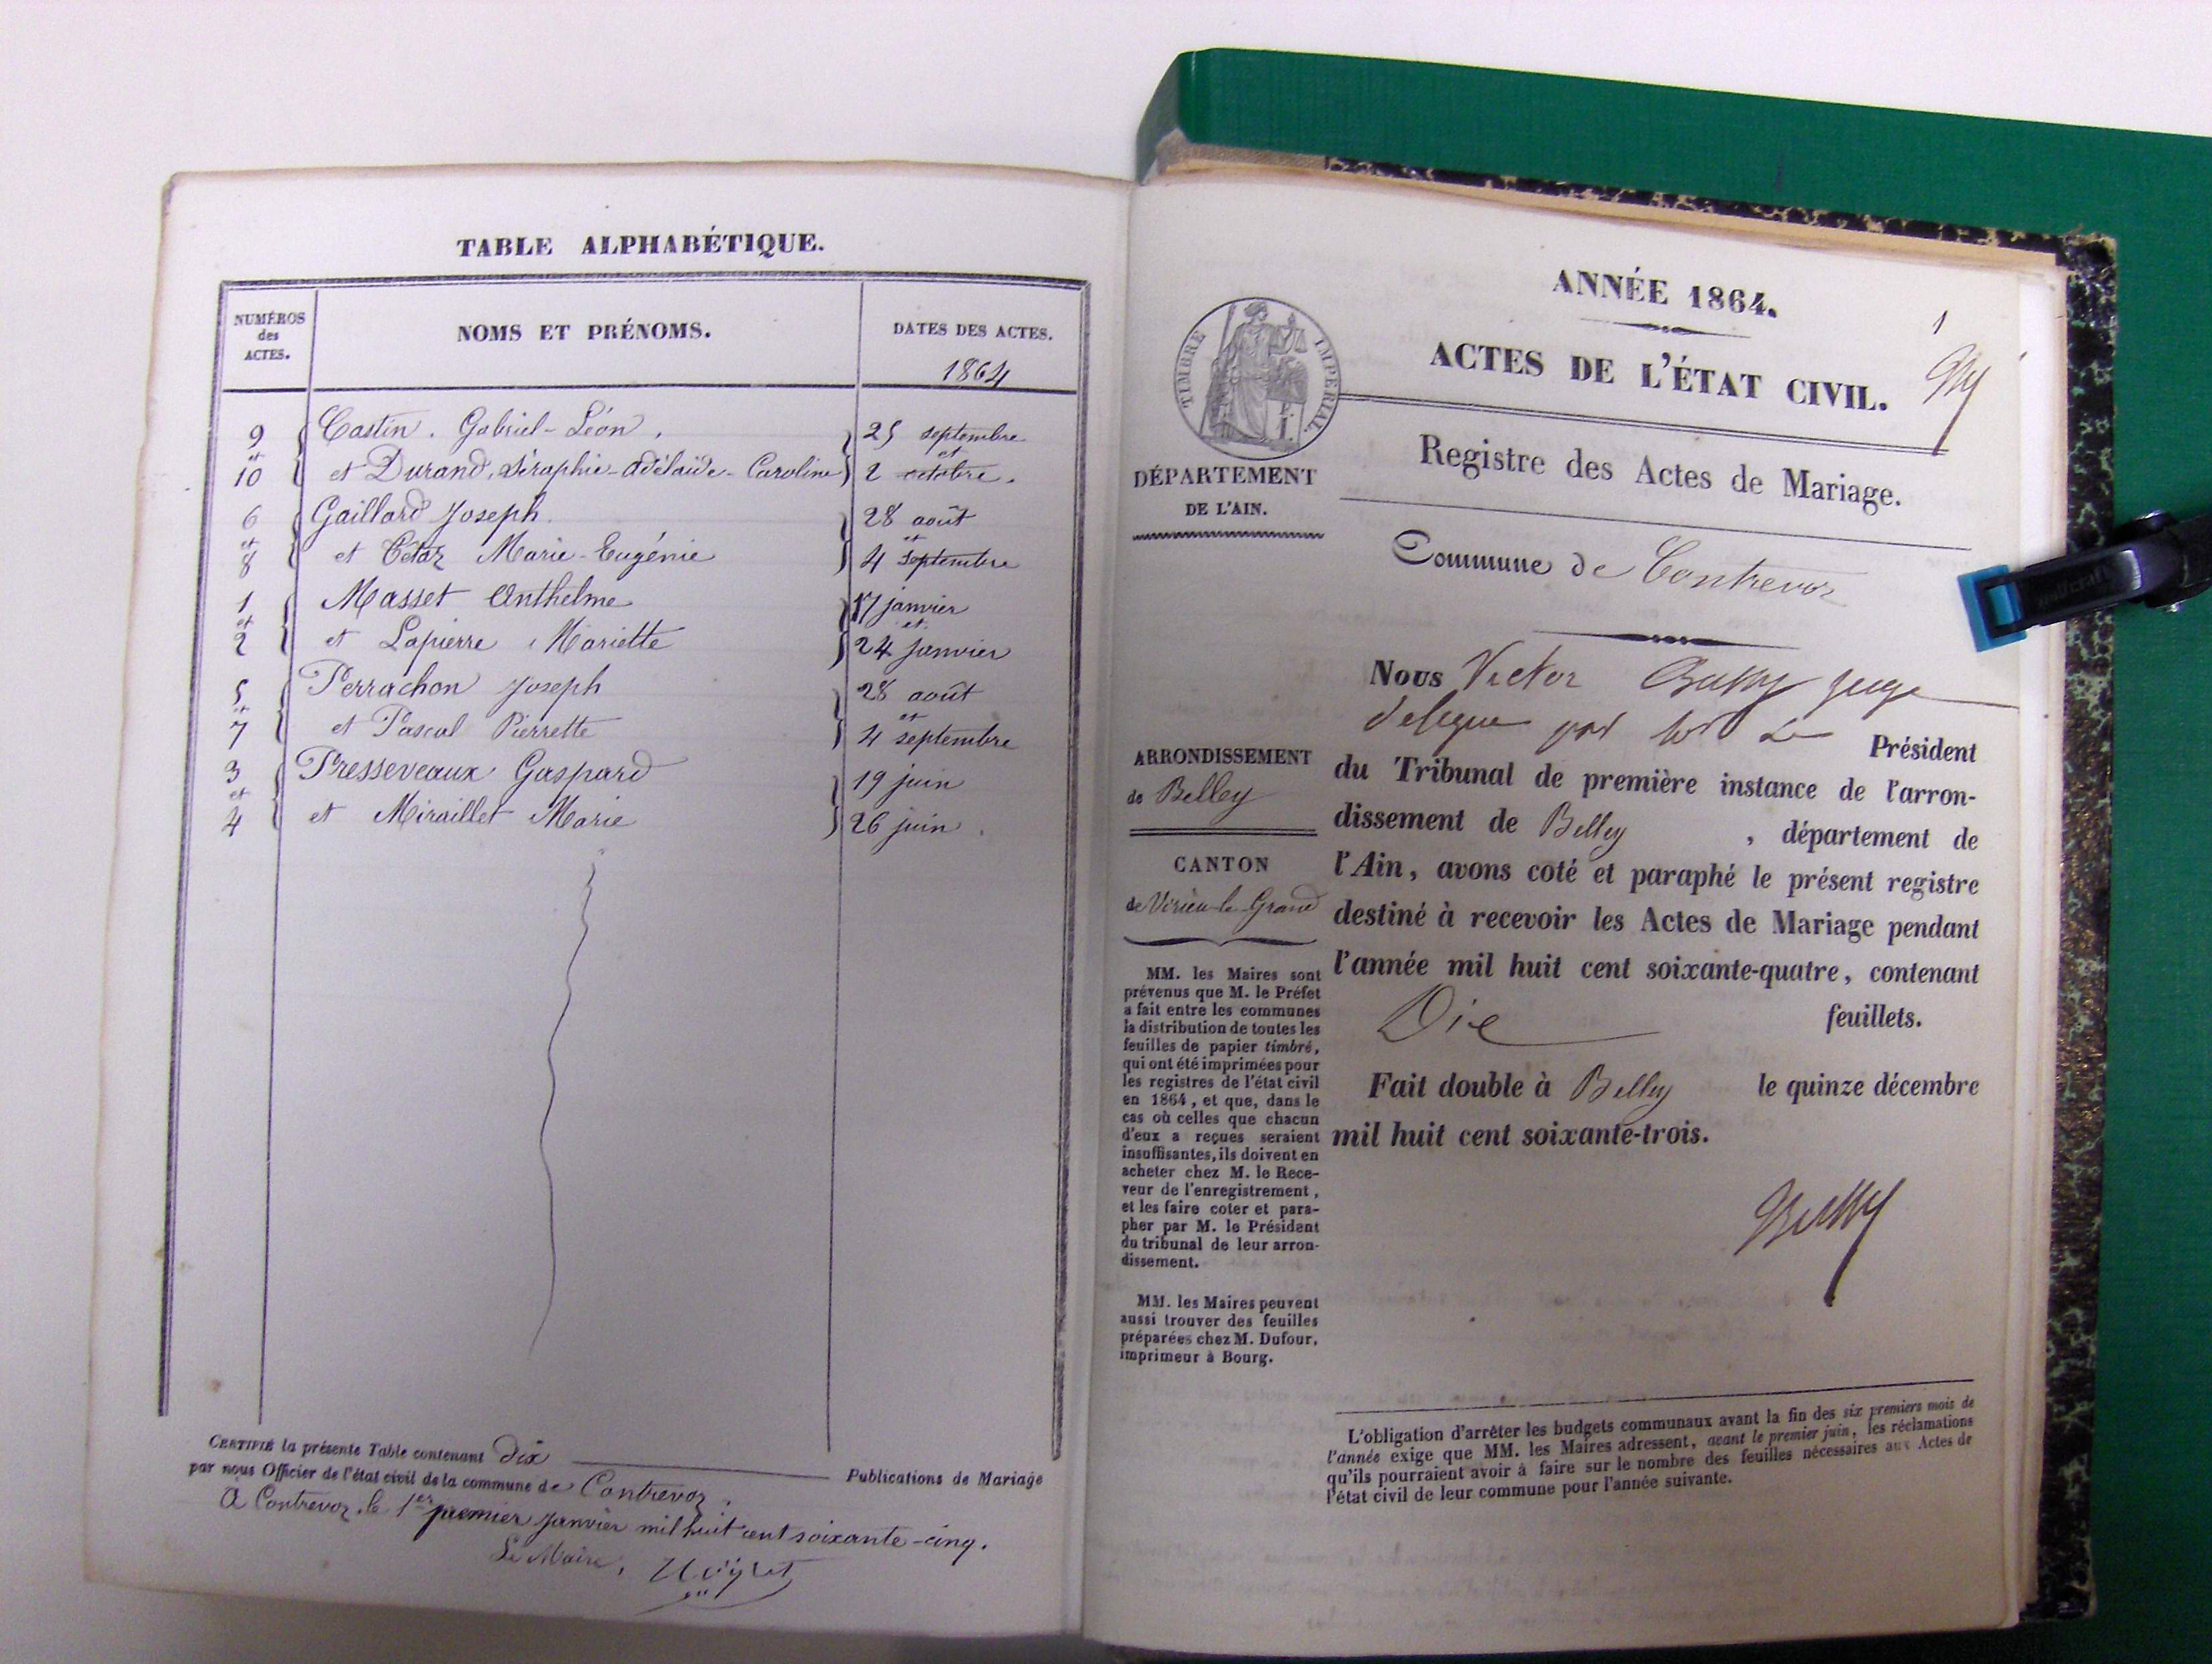 TABLE ALPHABÉTIQUE.
NUMÉROS des ACTES.
NOMS ET PRÉNOMS.
DATES DES ACTES.
1864
9 Castin. Gabriel-Léon, 25 septembre
et et
10 et Durand, Séraphie-Adélaïde-Caroline 2 octobre.
6 Gaillard Joseph 28 août
et et
8 et Cétaz Marie-Eugénie 4 septembre
1 Masset Anthelme 17 janvier
et et
2 et Lapierre Mariette 24 janvier
5 Perrachon Joseph 28 août
et et
7 et Pascal Pierrette 4 septembre
3 Presseveaux Gaspard 19 juin
et
4 et Miraillet Marie 26 juin.
CERTIFIÉ la présente Table contenant dix Publications de Mariage
par nous Officier de l'état civil de la commune de Contrevoz.
A Contrevoz, le 1er premier janvier mil huit cent soixante-cinq.
Le Maire,
ANNÉE 1864.
1
ACTES DE L'ÉTAT CIVIL.
TIMBRE IMPERIAL.
Registre des Actes de Mariage.
DÉPARTEMENT
DE L'AIN.
Commune de Contrevoz
ARRONDISSEMENT
de Belley
CANTON
de Virieu-le-Grand
MM. les Maires sont
prévenus que M. le Préfet
a fait entre les communes
la distribution de toutes les
feuilles de papier timbré,
qui ont été imprimées pour
les registres de l'état civil
en 1864, et que, dans le
cas où celles que chacun
d'eux a reçues seraient
insuffisantes, ils doivent en
acheter chez M. le Rece-
veur de l'enregistrement,
et les faire coter et para-
pher par M. le Président
du tribunal de leur arron-
dissement.
MM. les Maires peuvent
aussi trouver des feuilles
préparées chez M. Dufour,
imprimeur à Bourg.
Nous Victor Bussy juge
delegue par Mr Le Président
du Tribunal de première instance de l'arron-
dissement de Belley, département de
l'Ain, avons coté et paraphé le présent registre
destiné à recevoir les Actes de Mariage pendant
l'année mil huit cent soixante-quatre, contenant
Dix feuillets.
Fait double à Belley le quinze décembre
mil huit cent soixante-trois.
Bussy
L'obligation d'arrêter les budgets communaux avant la fin des six premiers mois de
l'année exige que MM. les Maires adressent, avant le premier juin, les réclamations
qu'ils pourraient avoir à faire sur le nombre des feuilles nécessaires aux Actes de
l'état civil de leur commune pour l'année suivante.